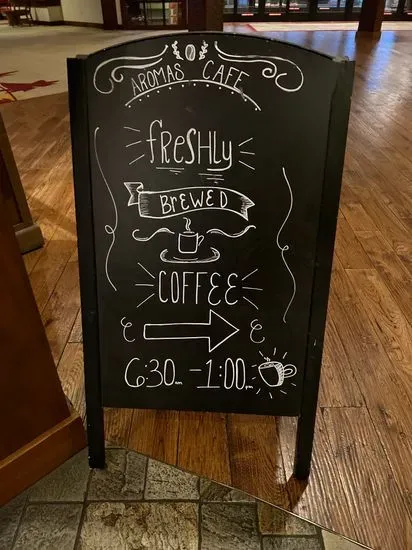 AROMAS CAFE
fRESHLy
BREWED
COFFEE
6:30am - 1:00pm